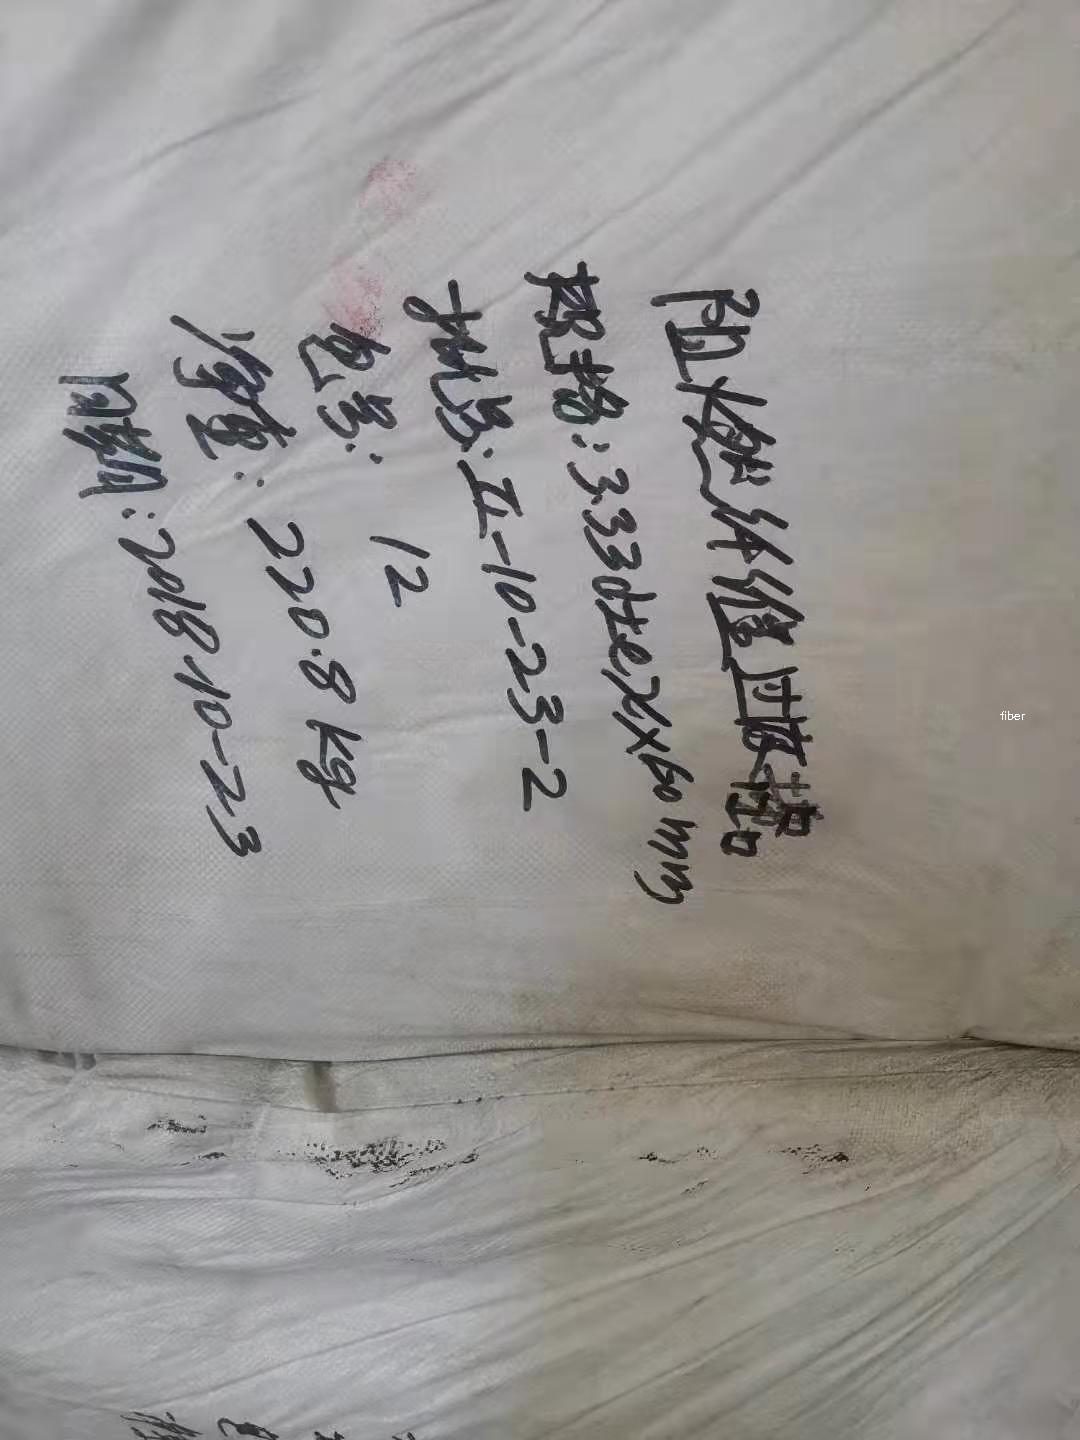 阻燃纤维
规格:3.33dtex×60mm
批号:II-10-23-2
包号: 12
净重: 220.8kg
日期:2018.10-23
fiber